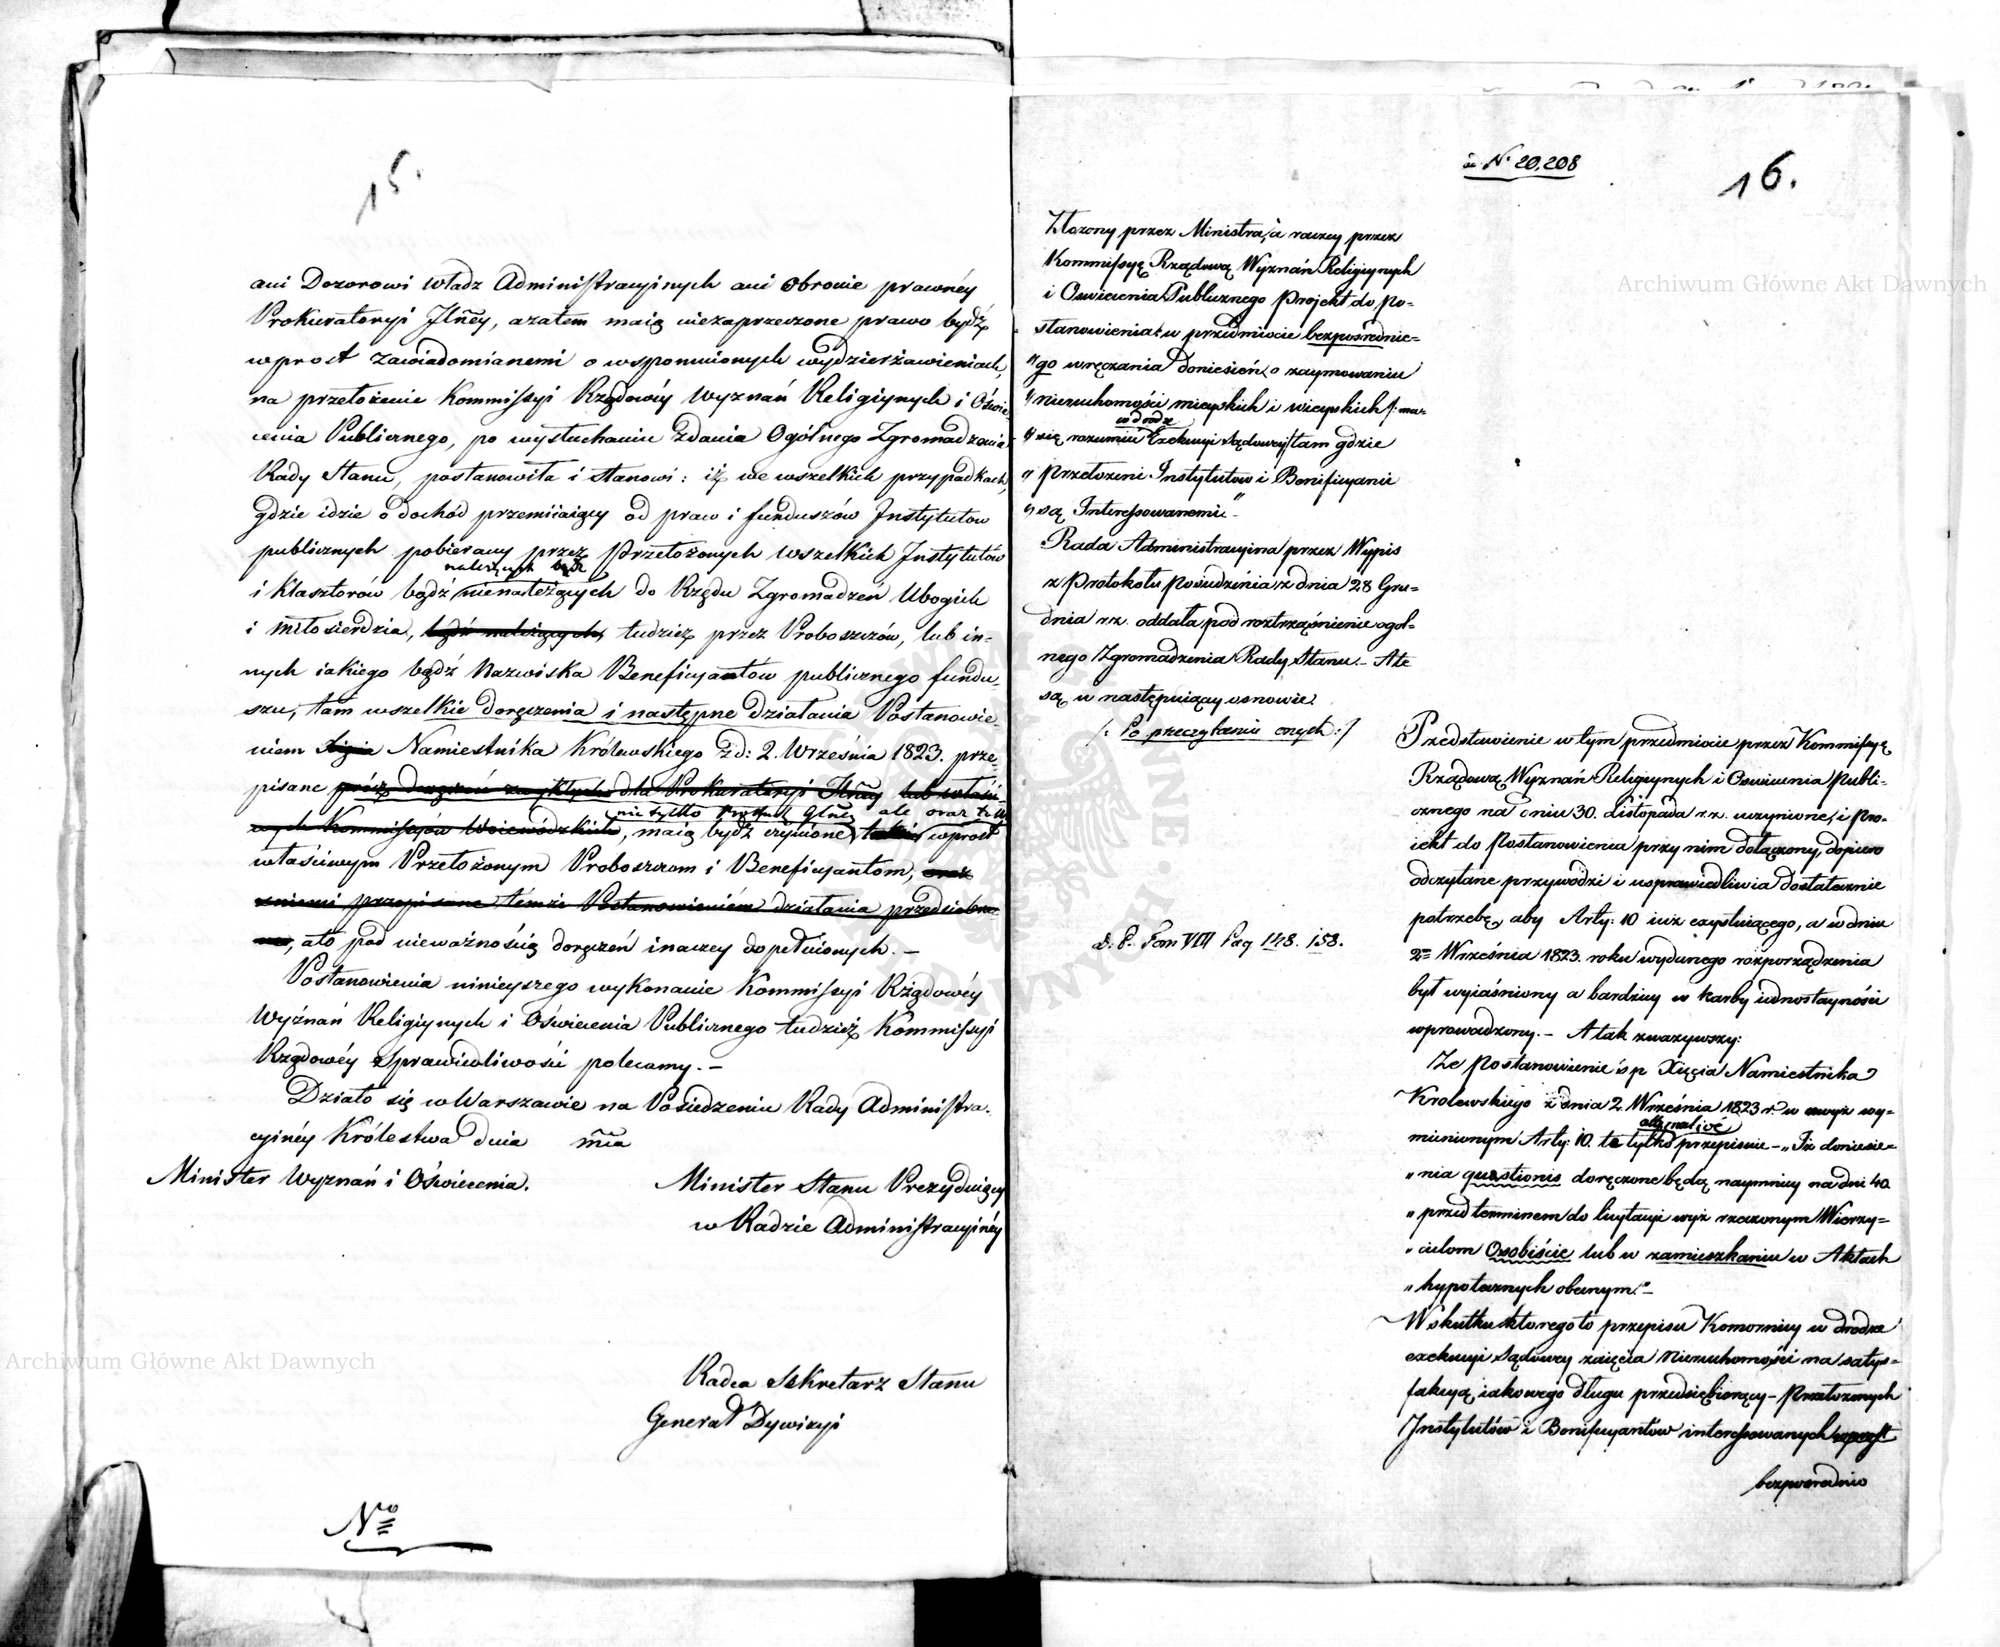 15.
ani Dozorowi Władz Administracyinych ani obronie prawnéy
Prokuratoryi Jlnéy, azatem maią niezaprzeczone prawo bydź
wprost zawiadomianemi o wspomnionych wydzierżawieniach,
na przełożenie Kommissyi Rządowéy Wyznań Religiynych i Oświe-
cenia Publicznego, po wysłuchaniu Zdania Ogólnego Zgromadzenia
Rady Stanu, postanowiła i stanowi: iż we wszelkich przypadkach,
gdzie idzie o dochód przemiiaiący od praw i funduszów Instytutow
publicznych pobierany przez Przełożonych wszelkich Instytutów
należących bądź
i Klasztorów bądź nienależących do Rzędu Zgromadzeń Ubogich
i miłosierdzia, bądź należących, tudzież przez Proboszczów, lub in-
nych iakiego bądź Nazwiska Beneficyantów publicznego fundu-
szu, tam wszelkie doręczenia i następne działania Postanowie-
niem Xięcia Namiestnika Królewskiego z d: 2. Września 1823. prze-
pisane prócz doręczeń zwykłych dla Prokuratoryi Jlnéy lub właści-
nie tylko Prokur: Glnéy ale oraz
wych Kommissyów Woiewódzkich, maią bydź czynione, także wprost
właściwym Przełożonym Proboszczom i Beneficyantom, oraz
zniemi przepisane témże Postanowieniem działania przedsiebra-
ne, a to pod nieważnością doręczeń inaczey dopełnionych. –
Postanowienia ninieyszego wykonanie Kommissyi Rządowéy
Wyznań Religiynych i Oświecenia Publicznego tudzież Kommissyi
Rządowéy Sprawiedliwości polecamy. –
Działo się w Warszawie na Posiedzeniu Rady Administra-
cyinéy Królestwa dnia mca
Minister Wyznań i Oświecenia.
Minister Stanu Prezyduiący
w Radzie Administracyinéy
Radca Sekretarz Stanu
Generał Dywizyi
Nro
ad N. 20,208
16.
Złożony przez Ministra, a raczey przez
Kommissyę Rządową Wyznań Religiynych
i Oswiecenia Publicznego Projekt do Po-
stanowienia: w przedmiocie bezposrednie-
"go wręczania doniesień, o zaymowaniu
"nieruchomości mieyskich i wieyskich /: ma
w drodze
"się rozumieć Exekucyi sądowey/ tam gdzie
"Przełożeni Instytutow i Beneficyanci
"są Interessowanemi." –
Rada Administracyina przez Wypis
z Protokołu Posiedzenia z dnia 28 Gru-
dnia r. z. oddała pod roztrząśnienie ogol-
nego Zgromadzenia Rady Stanu. – Ale
są w następuiący osnowie.
/: Po przeczytaniu onych :/
D. P. Tom VIII Pag 148. 158.
Przedstawienie w tym przedmiocie przez Kommissyę
Rządową Wyznań Religiynych i Oswiecenia Publi-
cznego na dniu 30. Listopada r. z. uczynione, i Pro-
iekt do Postanowienia przy nim dołączony, dopiero
odczytane przywodzi i usprawiedliwia dostatecznie
potrzebę, aby Arty: 10 iuż exystuiącego, a w dniu
2m Września 1823. roku wydanego rozporządzenia
był wyiaśniony a bardziey w karby iednostayności
wprowadzony. – A tak zważywszy:
Że Postanowienie ś p Xięcia Namiestnika
Krolewskiego z dnia 2. Września 1823 r. w wyż wy-
mienionym Arty: 10. te tylko przepisuie – „Iż doniesie-
„nia quaestionis doręczone będą naymniey na dni 40.
„przed terminem do licytacyi wyż rzeczonym Wierzy-
„cielom Osobiście lub w zamieszkaniu w Aktach
„hypotecznych obranym." –
W skutku ktoregoto przepisu Komornicy w drodze
exekucyi Sądowey zaięcia Nieruchomości na satys-
fakcyą iakowego długu przedsiębiorący – Przełożonych
Instytutów i Beneficyantów interessowanych wprost
bezposrednio